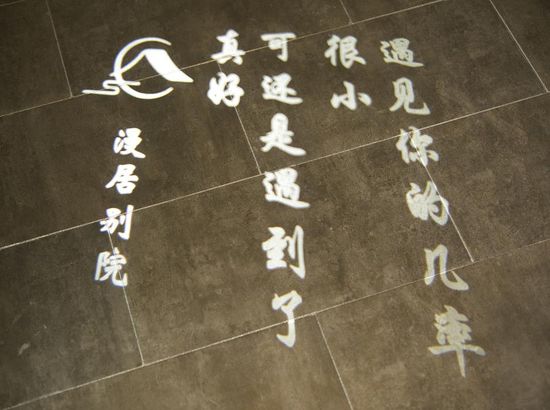 遇见你的几率
很小
可还是遇到了
真好
漫居别院